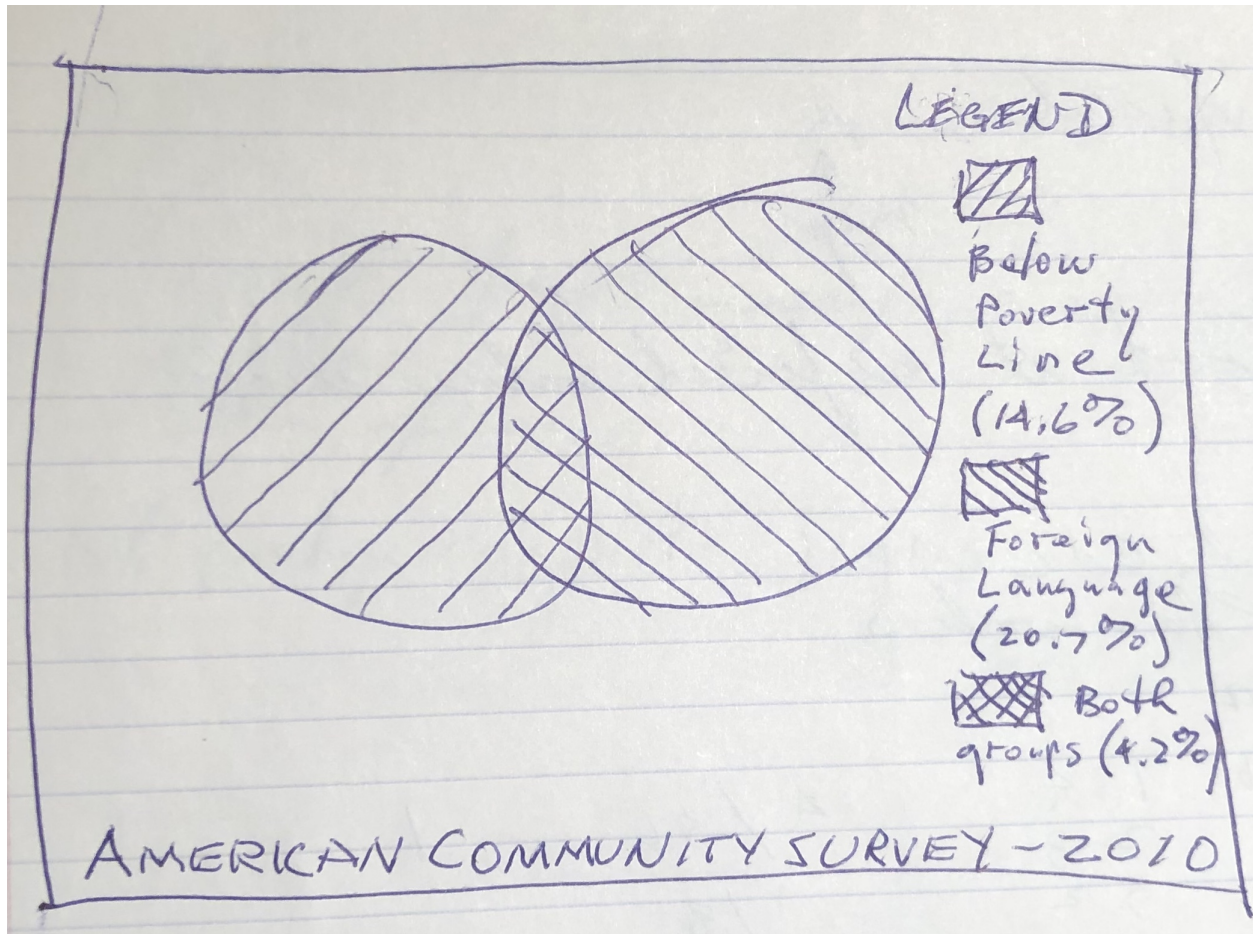 LEGEND
Below
Poverty
Line
(14.6%)
Foreign
Language
(20.7%)
Both
groups (4.2%)
AMERICAN COMMUNITY SURVEY - 2010